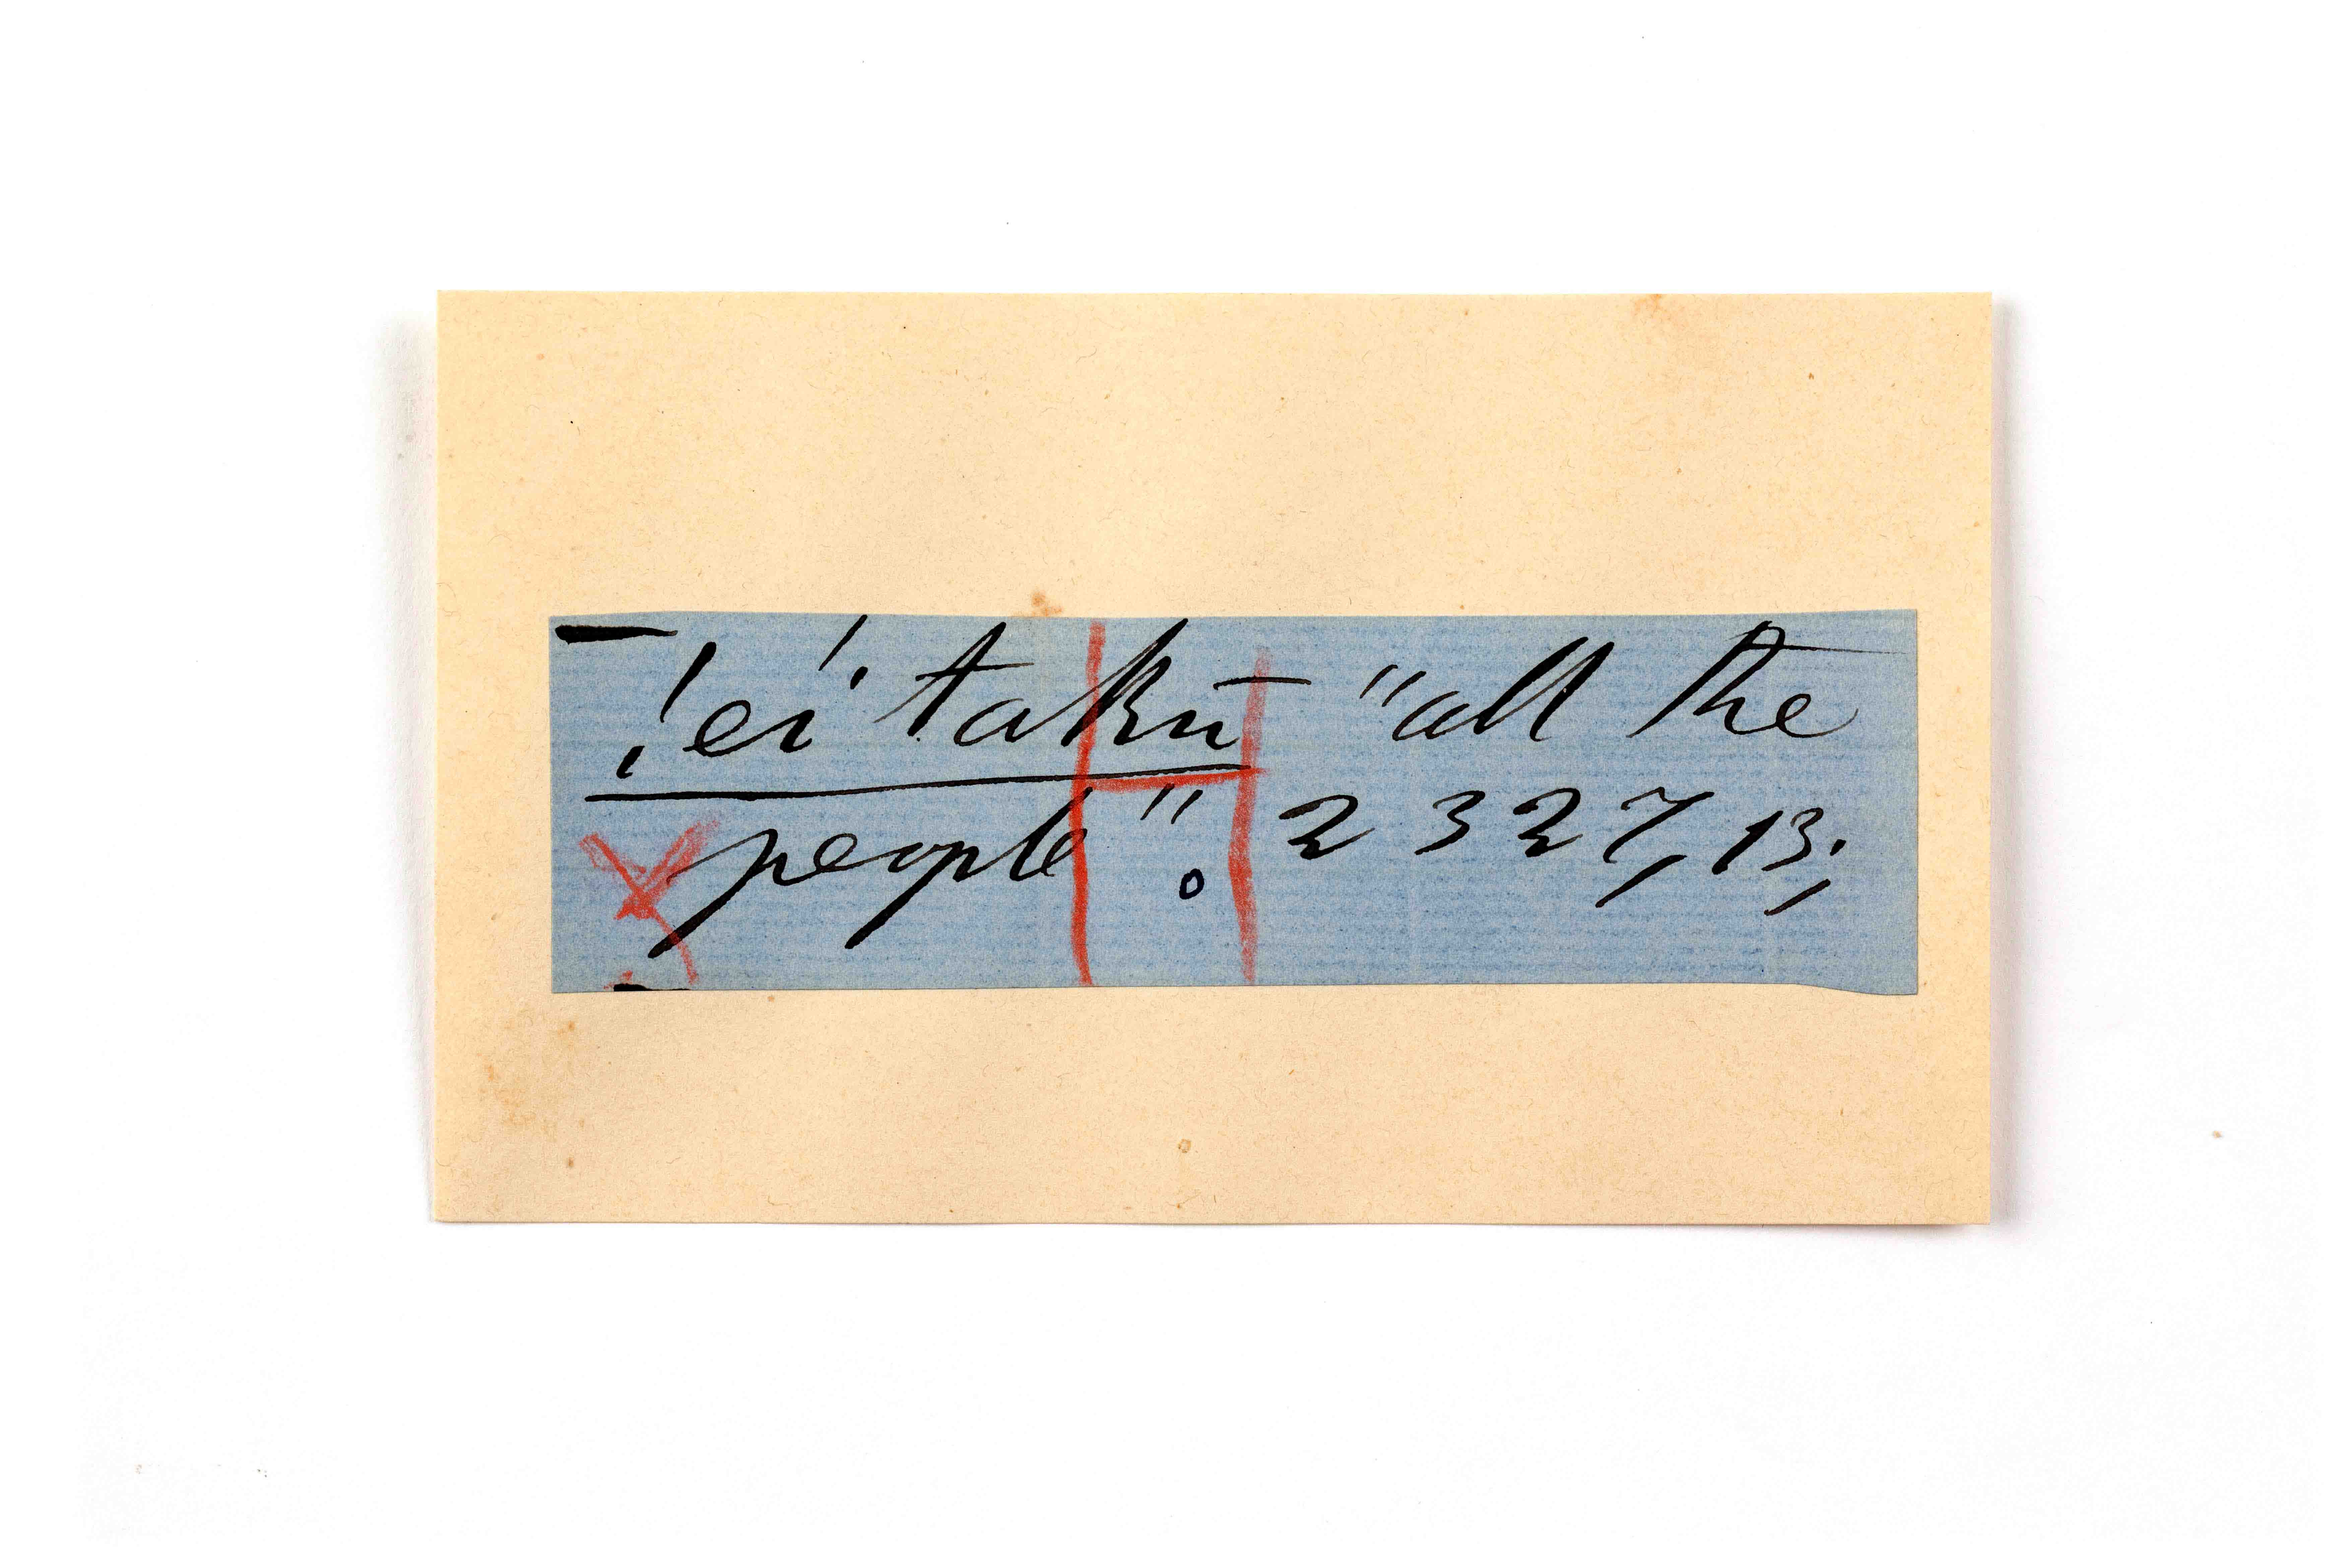 !ei' takū "all the
people". 2 3 2 7, 13;